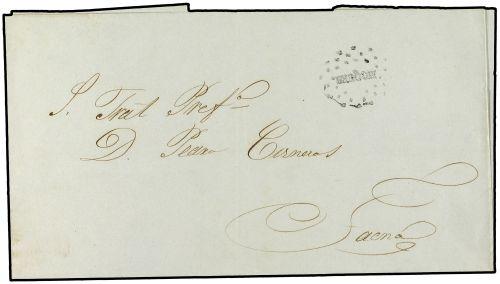 S. Trãt Pref.o
D. Pedro Cisneros
Tacna